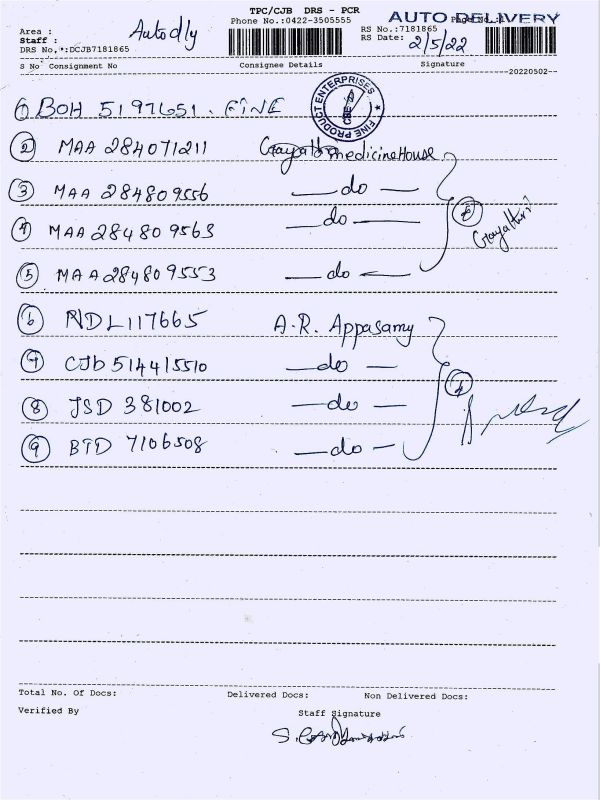 TPC/CJB DRS - PCR
AUTO DELIVERY
Phone No.:0422-3505555
Area :
Staff :
Autodly
DRS No.:DCJB7181865
RS No.:7181865
RS Date: 2/5/22
S No Consignment No Consignee Details Signature
20220502
① BOH 5197651. FINE
FINE PRODUCT ENTERPRISES CBE
② MAA 284071211 Gayathri medicine House
③ MAA 284809556 — do —
④ MAA 284809563 — do —
⑤ MAA 284809553 — do —
Gayathri
⑥ NDL117665 A.R. Appasamy
⑦ CJb 514415510 — do —
⑧ JSD 381002 — do —
⑨ BTD 7106508 — do —
Total No. Of Docs: Delivered Docs: Non Delivered Docs:
Verified By Staff Signature